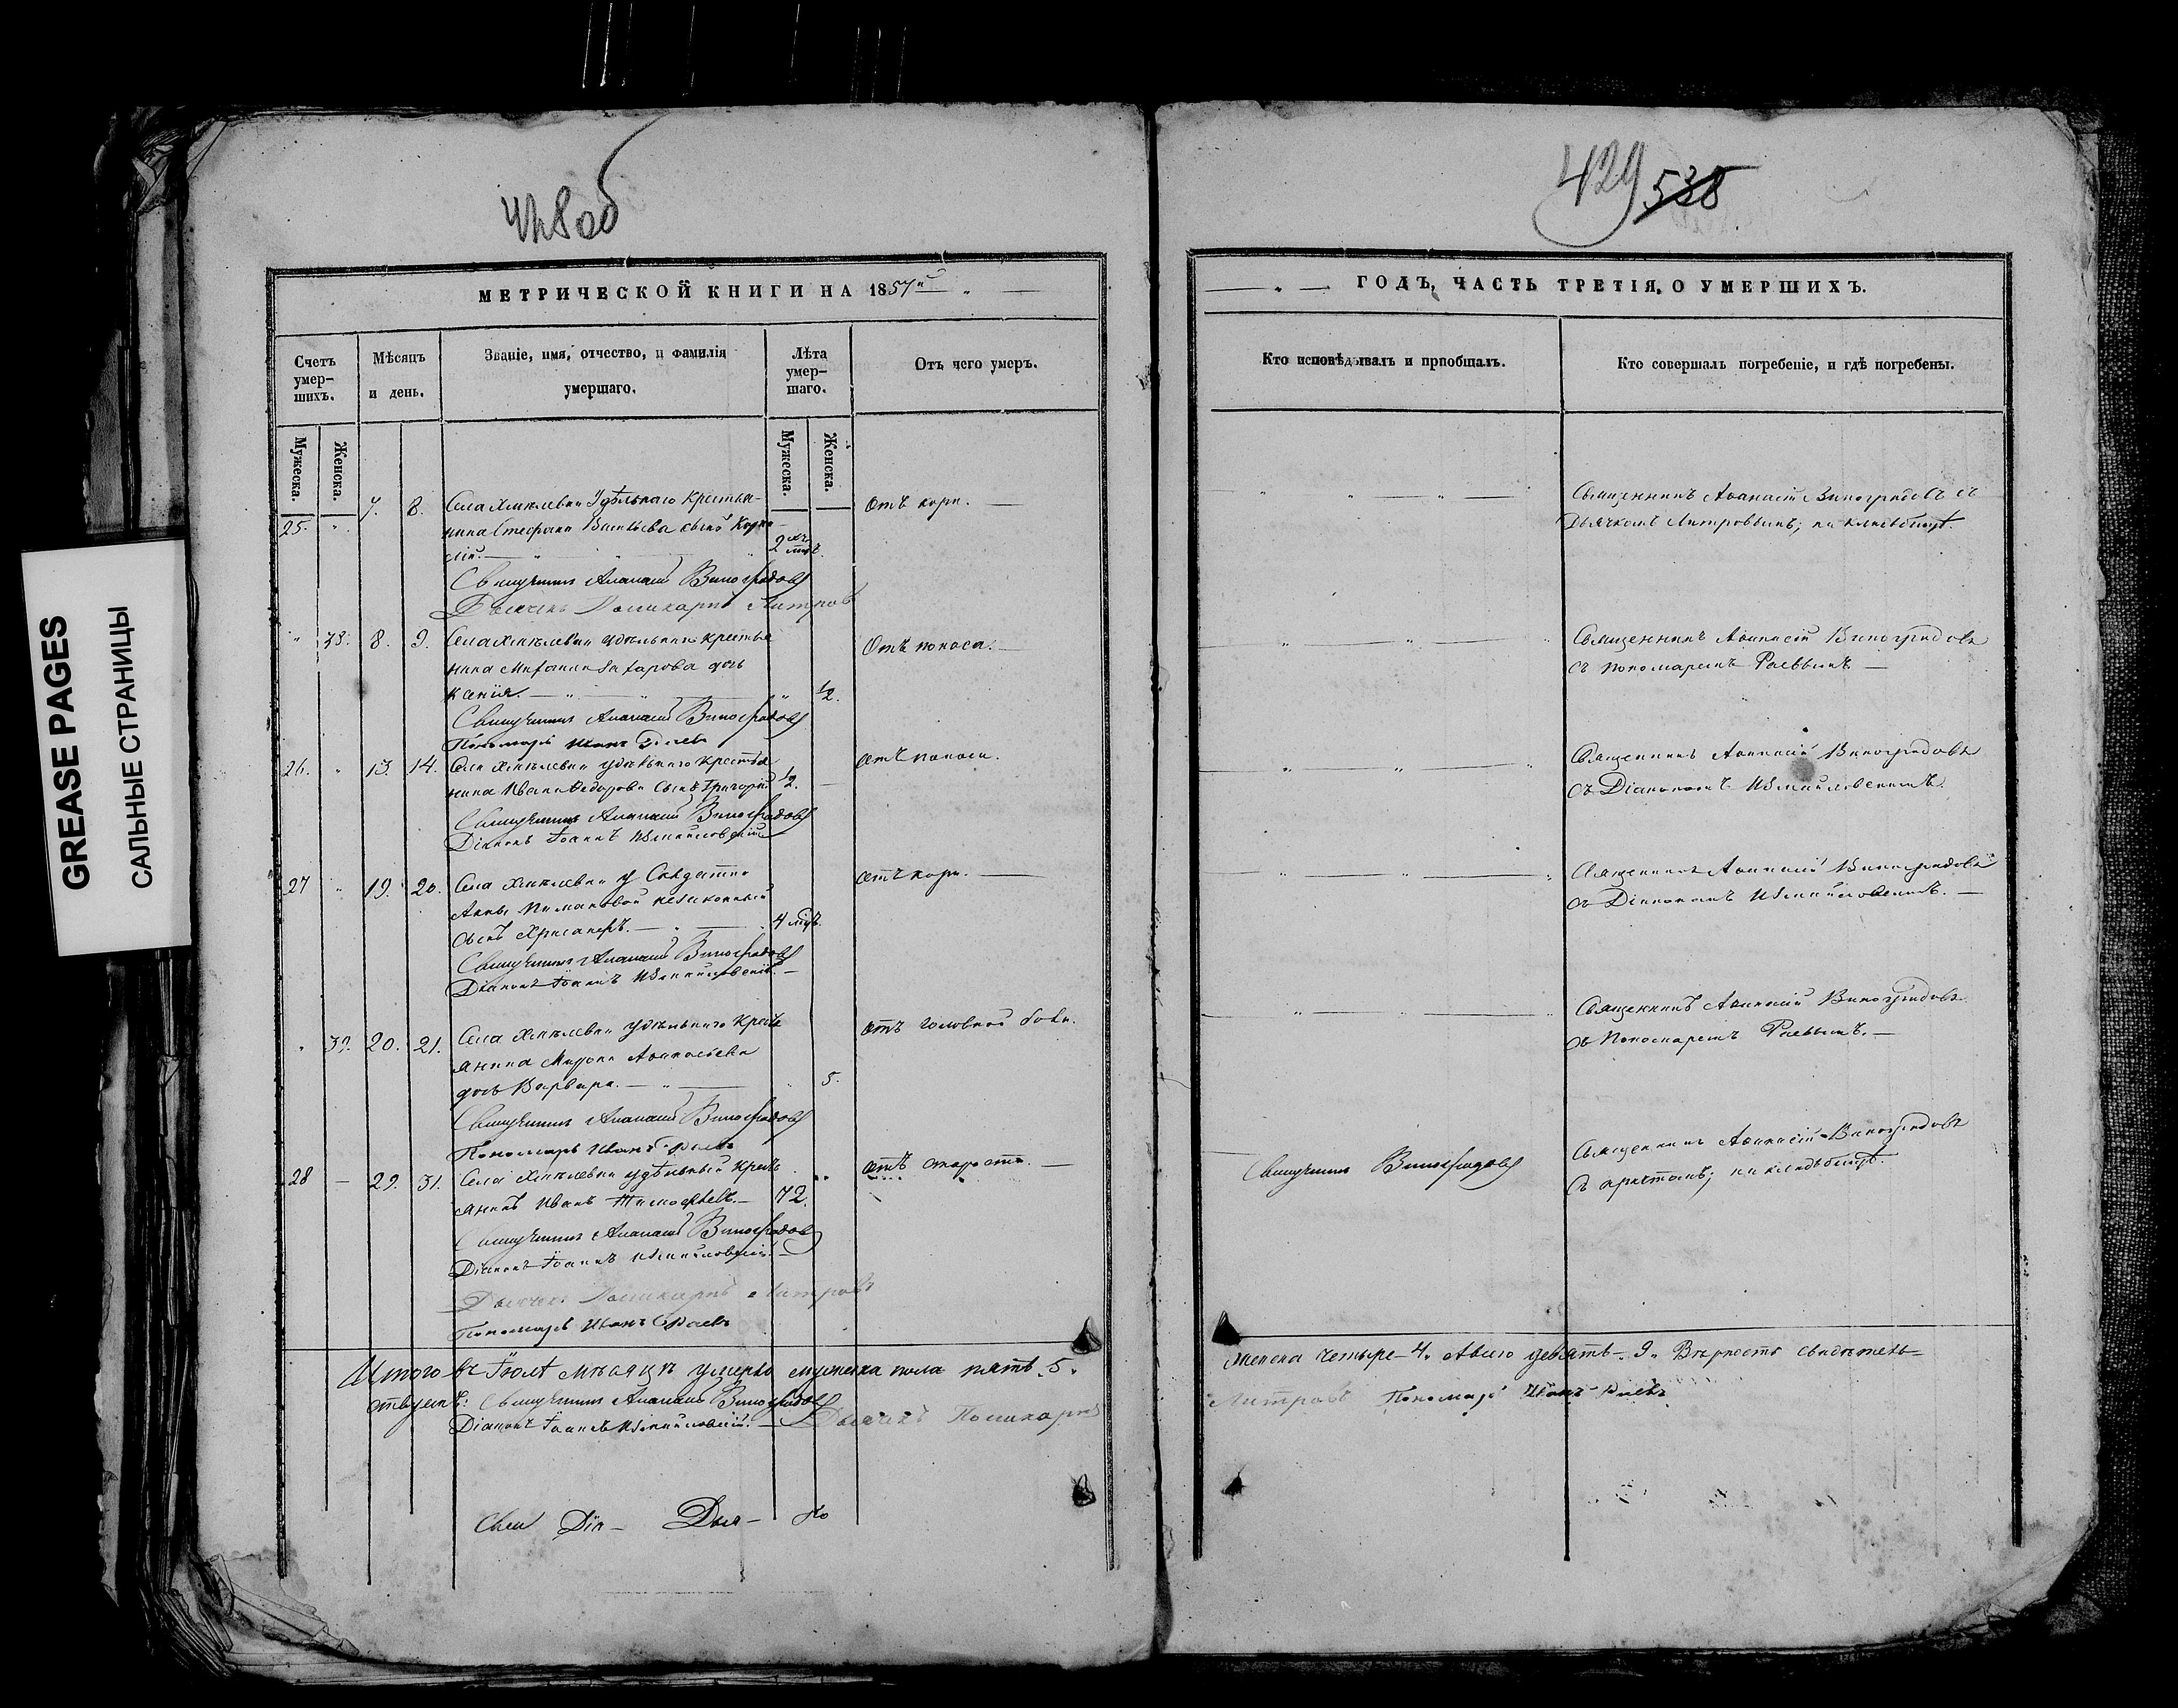 GREASE PAGES
САЛЬНЫЕ СТРАНИЦЫ
428об
МЕТРИЧЕСКОЙ КНИГИ НА 1857й
Счетъ умер-шихъ.
Мѣсяцъ и день.
Званіе, имя, отчество, и фамилія умершаго.
Лѣта умер-шаго.
Отъ чего умеръ.
Мужеска.
Женска.
Мужеска.
Женска.
7. 8. Села Хмѣлевки Удѣльнаго крестья- Отъ кори.
25. нина Стефана Васильева сынъ Корни-
лій. 2
Священникъ Аѳанасій Виноградовъ
Дьячекъ Поликарпъ Митровъ
8. 9. Села Хмѣлевки удѣльнаго крестья Отъ поноса.
нина Захарова дочь
Ксенія. 1/2.
Священникъ Аѳанасій Виноградовъ
Пономарь Иванъ Раевъ
26. 13. 14. Села Хмѣлевки удѣльнаго крестья отъ поноса.
нина Ивана Ѳедорова сынъ Григорій 1/2.
Священникъ Аѳанасій Виноградовъ
Діаконъ Іоаннъ Измайловскій
27 19. 20. Села Хмѣлевки у Солдатки отъ кори.
Анны незаконный
сынъ Хрисанѳъ. 4 мѣс.
Священникъ Аѳанасій Виноградовъ
Діаконъ Іоаннъ Измайловскій.
20. 21. Села Хмѣлевки удѣльнаго крестъ отъ головной боли.
янина Мирона Аѳанасьева
дочь Варвара. 5.
Священникъ Аѳанасій Виноградовъ
Пономарь Иванъ Раевъ
28 29. 31. Села Хмѣлевки удѣльный крестъ отъ старости.
янинъ Иванъ Тимоѳѣевъ. 72.
Священникъ Аѳанасій Виноградовъ
Діаконъ Іоаннъ Измайловскій.
Дьячекъ Поликарпъ Митровъ
Пономарь Иванъ Раевъ
Итого въ Іюлѣ мѣсяцѣ умерло мужеска пола пять. 5.
ствуемъ: Священникъ Аѳанасій Виноградовъ
Діаконъ Іоаннъ Измайловскій. Дьячекъ Поликарпъ
Свя Діа- Дья- По
429 538
ГОДЪ, ЧАСТЬ ТРЕТІЯ, О УМЕРШИХЪ.
Кто исповѣдывалъ и пріобщалъ.
Кто совершалъ погребеніе, и гдѣ погребены.
Священникъ Аѳанасій Виноградовъ съ
Дьячкомъ Митровымъ; на кладбищѣ.
Священникъ Аѳанасій Виноградовъ
съ пономаремъ Раевымъ
Священникъ Аѳанасій Виноградовъ
съ Діакономъ Измайловскимъ.
Священникъ Аѳанасій Виноградовъ
съ Діакономъ Измайловскимъ.
Священникъ Аѳанасій Виноградовъ
съ Пономаремъ Раевымъ.
Священникъ Виноградовъ
Священникъ Аѳанасій Виноградовъ
съ причтомъ; на кладбищѣ.
Женска четыре 4. Обоего девять 9. Вѣрность свидѣтель-
Митровъ Пономарь Иванъ Раевъ